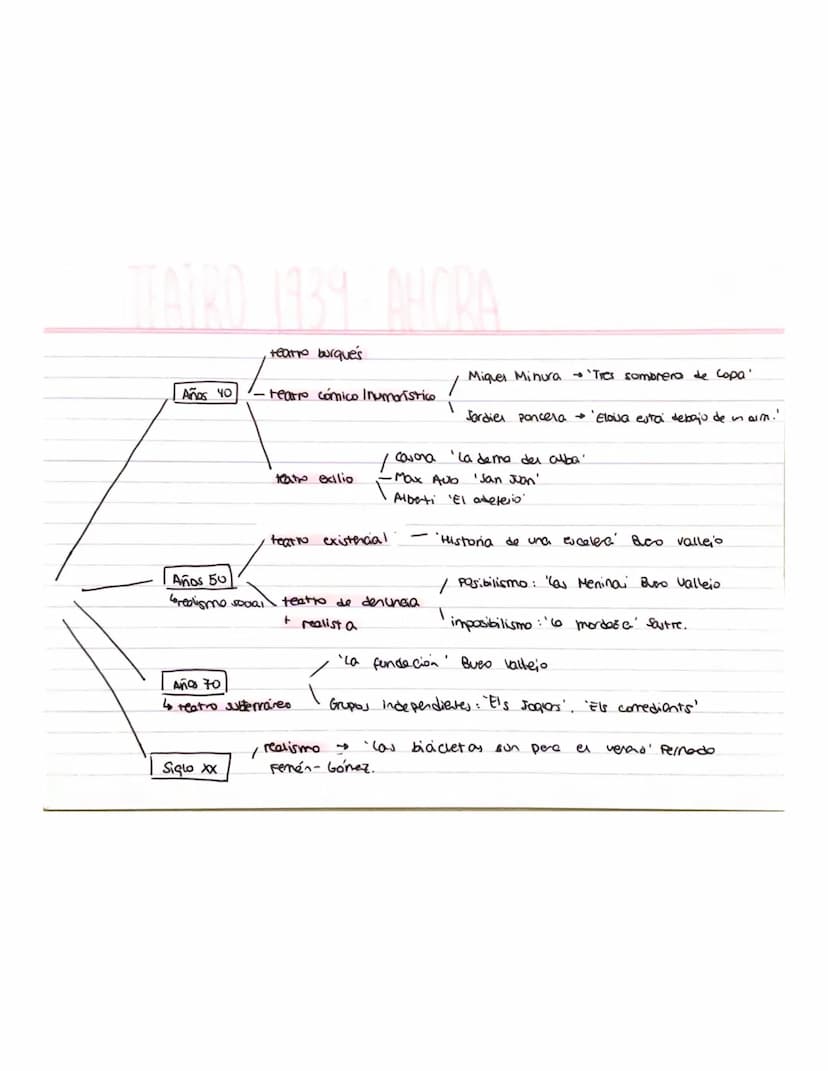 TEATRO 1939 - AHORA
teatro burgués
Años 40
teatro cómico / humorístico
Miguel Minura → 'Tres sombrero de copa'
Jardiel poncela → 'Eloisa está debajo de un alm.'
teatro exilio
Casona 'La dama del alba'
Max Aub 'San Juan'
Alberti 'El adefesio'
teatro existencial — 'Historia de una escalera' Buero Vallejo
Años 50
↳ realismo social
teatro de denuncia
+ realista
Posibilismo: 'Las Meninas' Buero Vallejo
imposibilismo: 'La mordaza' Sastre.
'La fundación' Buero Vallejo
Años 70
↳ teatro subterráneo
Grupos independientes: 'Els Joglars', 'Els comediants'
Siglo XX
realismo → 'Las bicicletas son para el verano' Fernando
Fernán-Gómez.